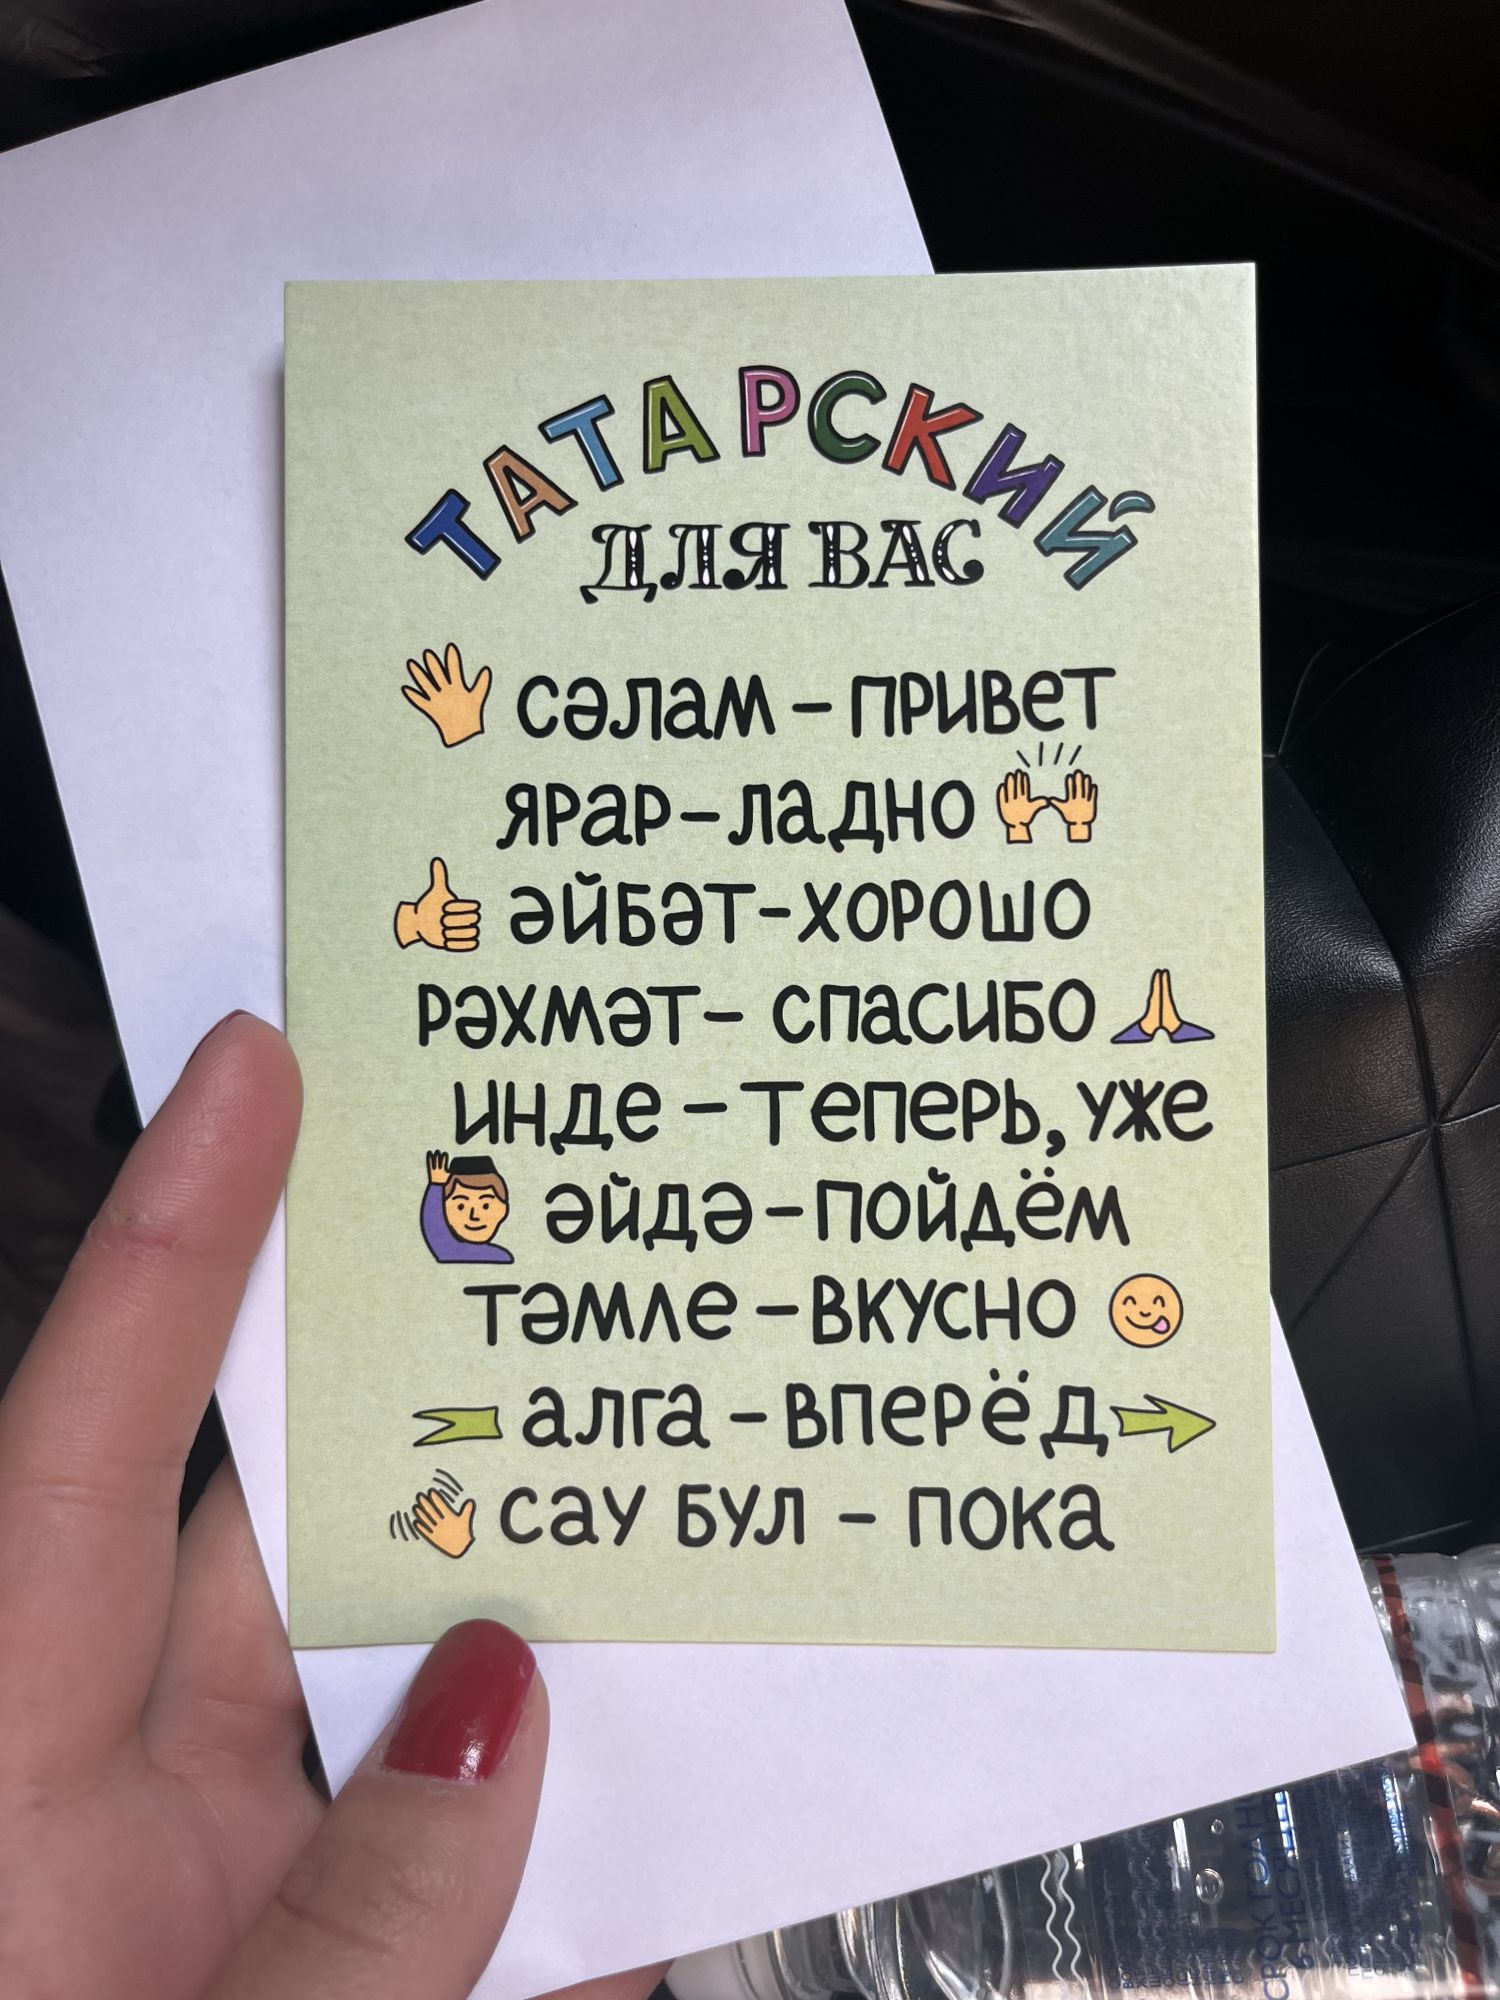 ТАТАРСКИЙ
ДЛЯ ВАС
сәлам – привет
ярар – ладно
әйбәт – хорошо
рәхмәт – спасибо
инде – теперь, уже
әйдә – пойдём
тәмле – вкусно
алга – вперёд
сау бул – пока
СРОК ГОДН
6 МЕСЯЦЕ